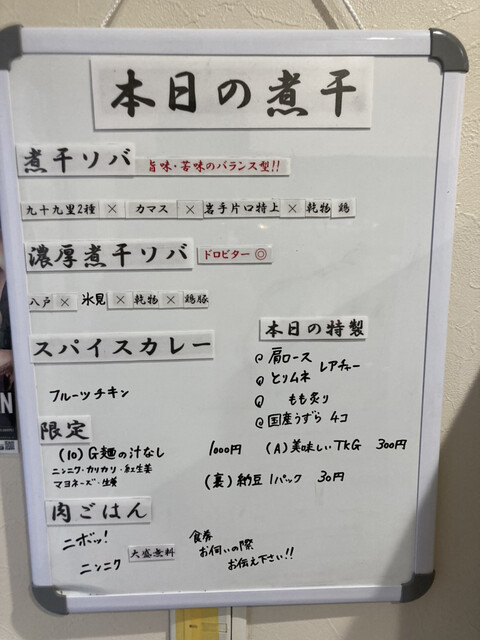 本日の煮干
煮干ソバ 旨味・苦味のバランス型!!
九十九里2種 × カマス × 岩手片口特上 × 乾物 鶏
濃厚煮干ソバ ドロビター ◎
八戸 × 氷見 × 乾物 × 鶏豚
スパイスカレー
フルーツチキン
本日の特製
@ 肩ロース
レアチャー
@ とりムネ
@ もも炙り
@ 国産うずら 4コ
限定
(10) G麺の汁なし 1000円
ニンニク・カリカリ・紅生姜
マヨネーズ・生姜
(A) 美味しいTKG 300円
(裏) 納豆 1パック 30円
肉ごはん
ニボッ!
ニンニク 大盛無料
食券
お伺いの際
お伝え下さい!!